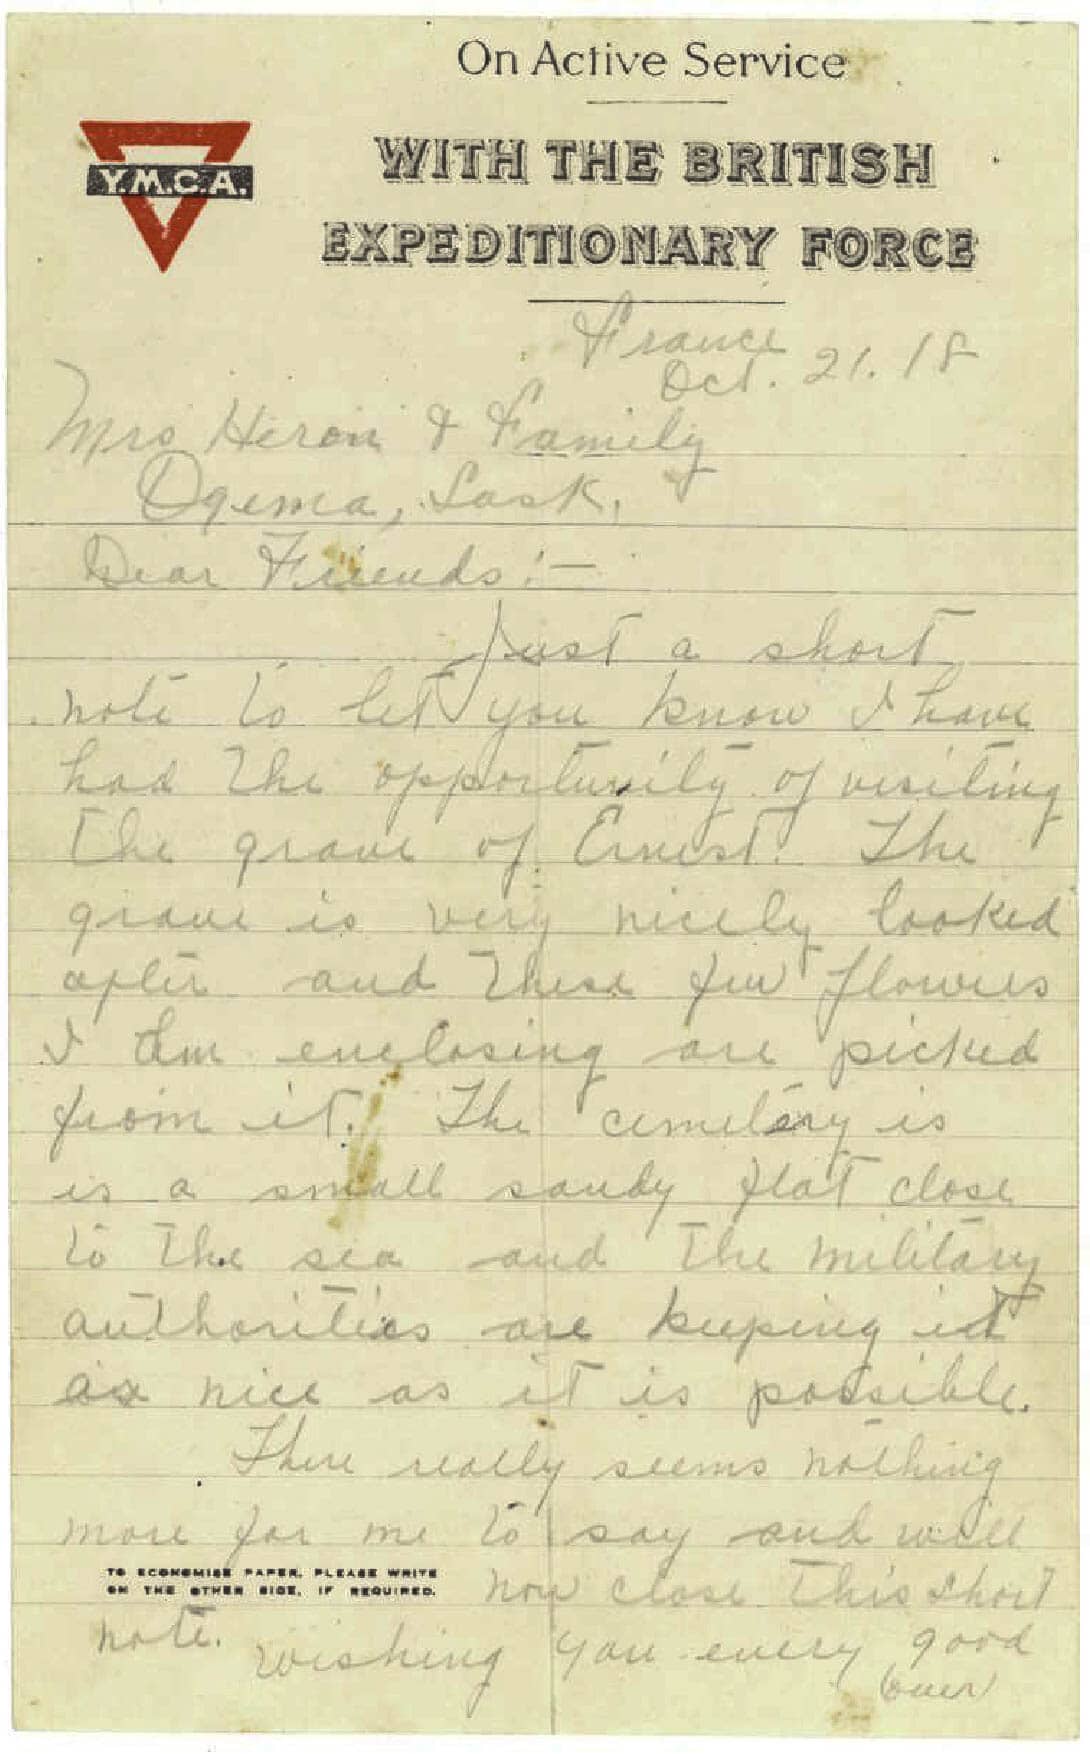 On Active Service
Y.M.C.A.
WITH THE BRITISH
EXPEDITIONARY FORCE
France
Oct. 21. 18
Mrs Heron & Family
Ogema, Sask.
Dear Friends:—
Just a short
note to let you know I have
had the opportunity of visiting
the grave of Ernest. The
grave is very nicely looked
after and these few flowers
I am enclosing are picked
from it. The cemetery is
is a small sandy flat close
to the sea and the military
authorities are keeping it
as nice as it is possible.
There really seems nothing
more for me to say and will
TO ECONOMISE PAPER, PLEASE WRITE
ON THE OTHER SIDE, IF REQUIRED.
now close this short
note. Wishing you every good
(over)